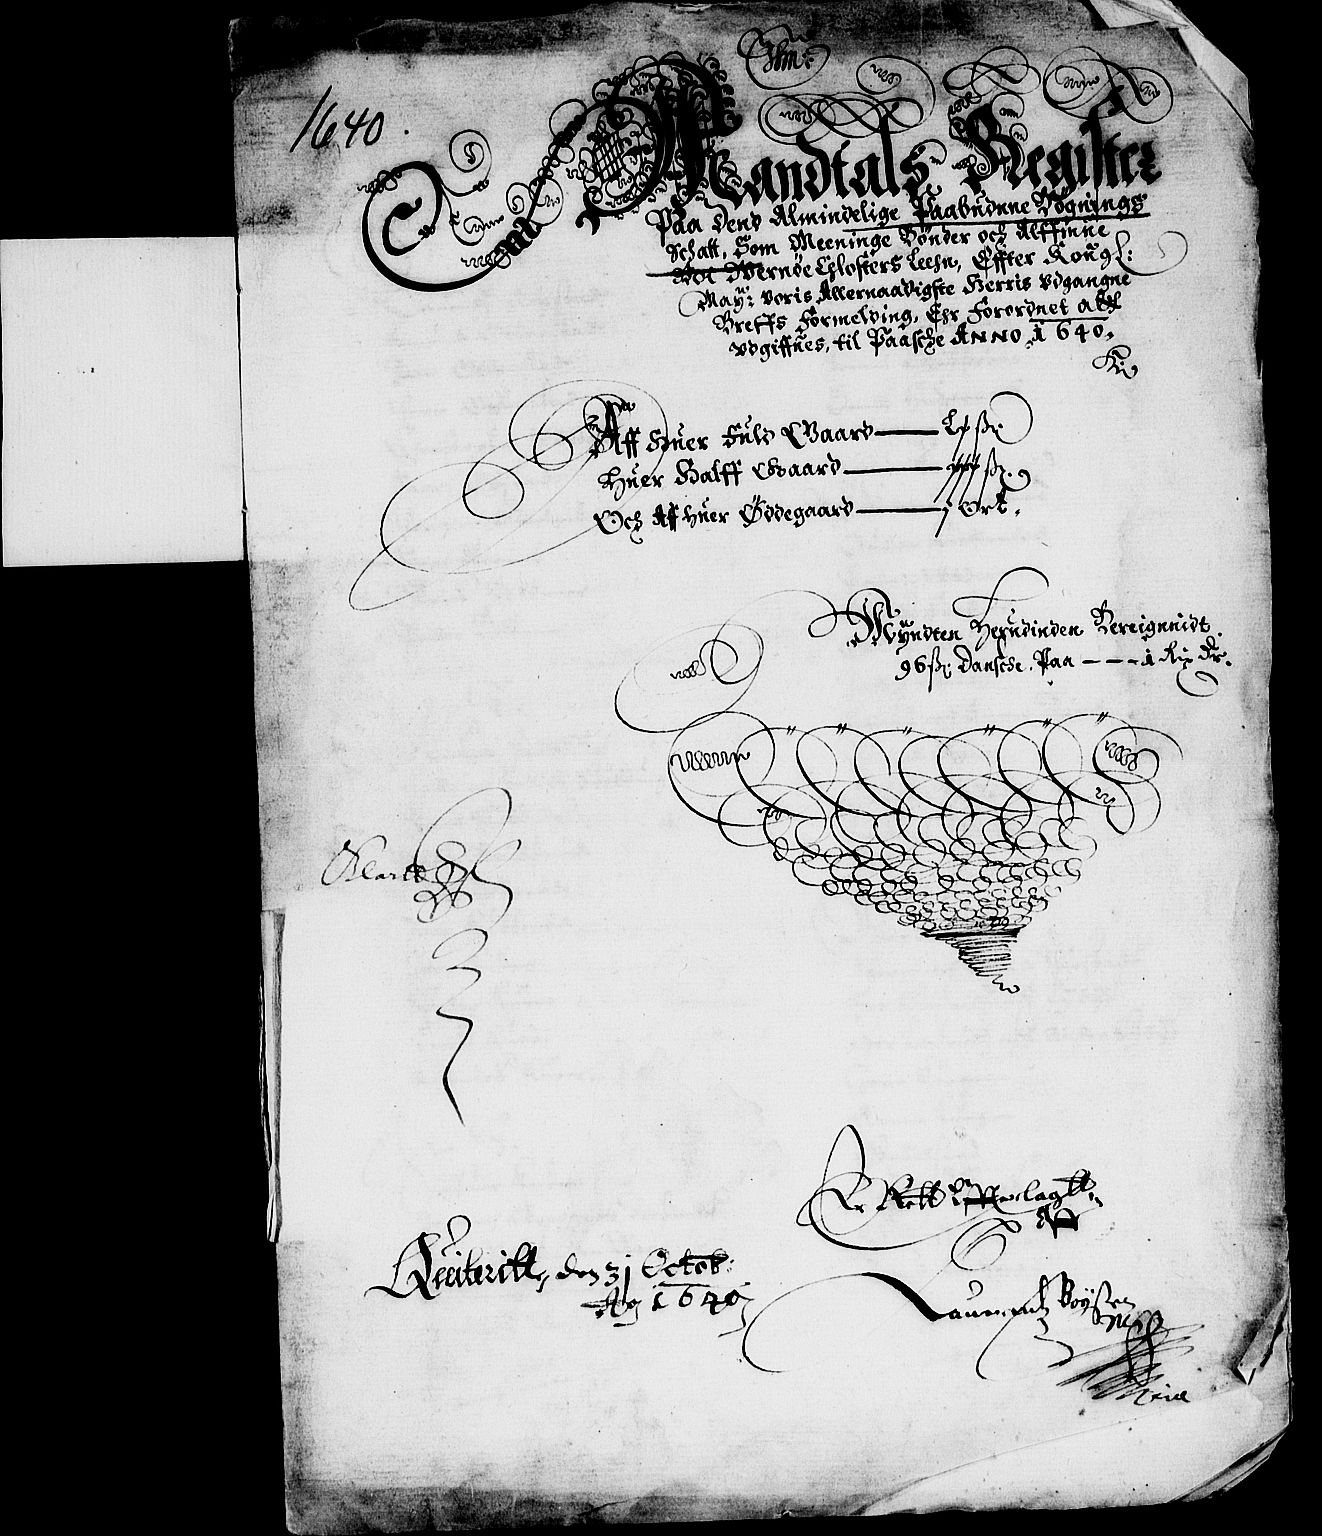 1640.
Mandtals Register
Paa Dend Almindelige Paabudne Bÿgnings
Schatt, Som Meeninge Bönder och Alffinne
Vdi Wernöe Closters Leehn, Effter Kong L:
Mayᵗ: voris Allernaadigste Herris Vdgangne
Breffs Formelding, Ehr Forordnet att
vdgiffues, til Paasche ANNO. 1640.
Aff Huer Fuld Gaard
Huer Halff Gaard ß.
Och Aff huer Öddegaard j Ort.
Mÿndten Herudinden Bereignnidt
96 ß Dansche. Paa - - - 1 Rix Dr.
Klartt
Er Rett
Quiteritt, den 31 Octob:
Ao 1640
Laurentz Boÿsen